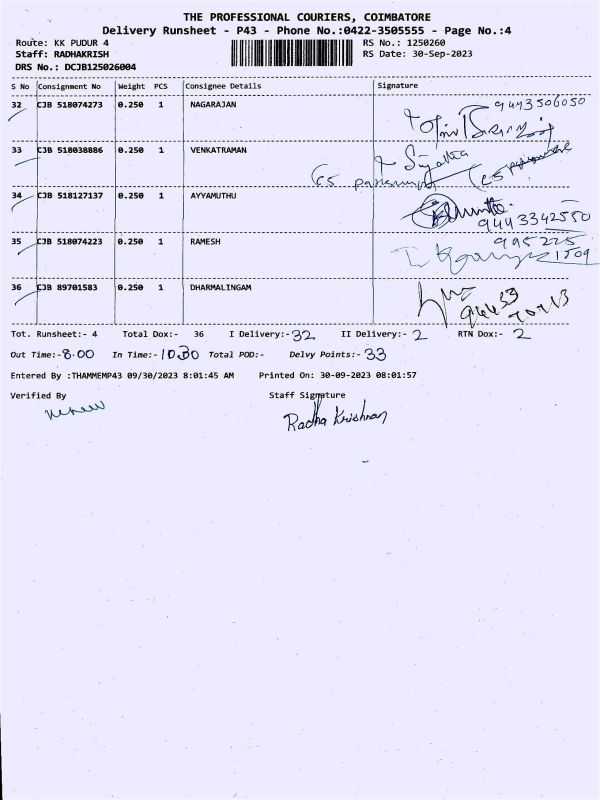 THE PROFESSIONAL COURIERS, COIMBATORE
Delivery Runsheet - P43 - Phone No.:0422-3505555 - Page No.:4
Route: KK PUDUR 4 RS No.: 1250260
Staff: RADHAKRISH RS Date: 30-Sep-2023
DRS No.: DCJB125026004
S No Consignment No Weight PCS Consignee Details Signature
32 CJB 518074273 0.250 1 NAGARAJAN 9443506050
33 CJB 518038886 0.250 1 VENKATRAMAN Sujatha
34 CJB 518127137 0.250 1 AYYAMUTHU
9443342550
35 CJB 518074223 0.250 1 RAMESH 995225
1509
36 CJB 89701583 0.250 1 DHARMALINGAM
Tot. Runsheet:- 4 Total Dox:- 36 I Delivery:- 32 II Delivery:- 2 RTN Dox:- 2
Out Time:- 8.00 In Time:- 10.30 Total POD:- Delvy Points:- 33
Entered By :THAMMEMP43 09/30/2023 8:01:45 AM Printed On: 30-09-2023 08:01:57
Verified By Staff Signature
Radha Krishnan